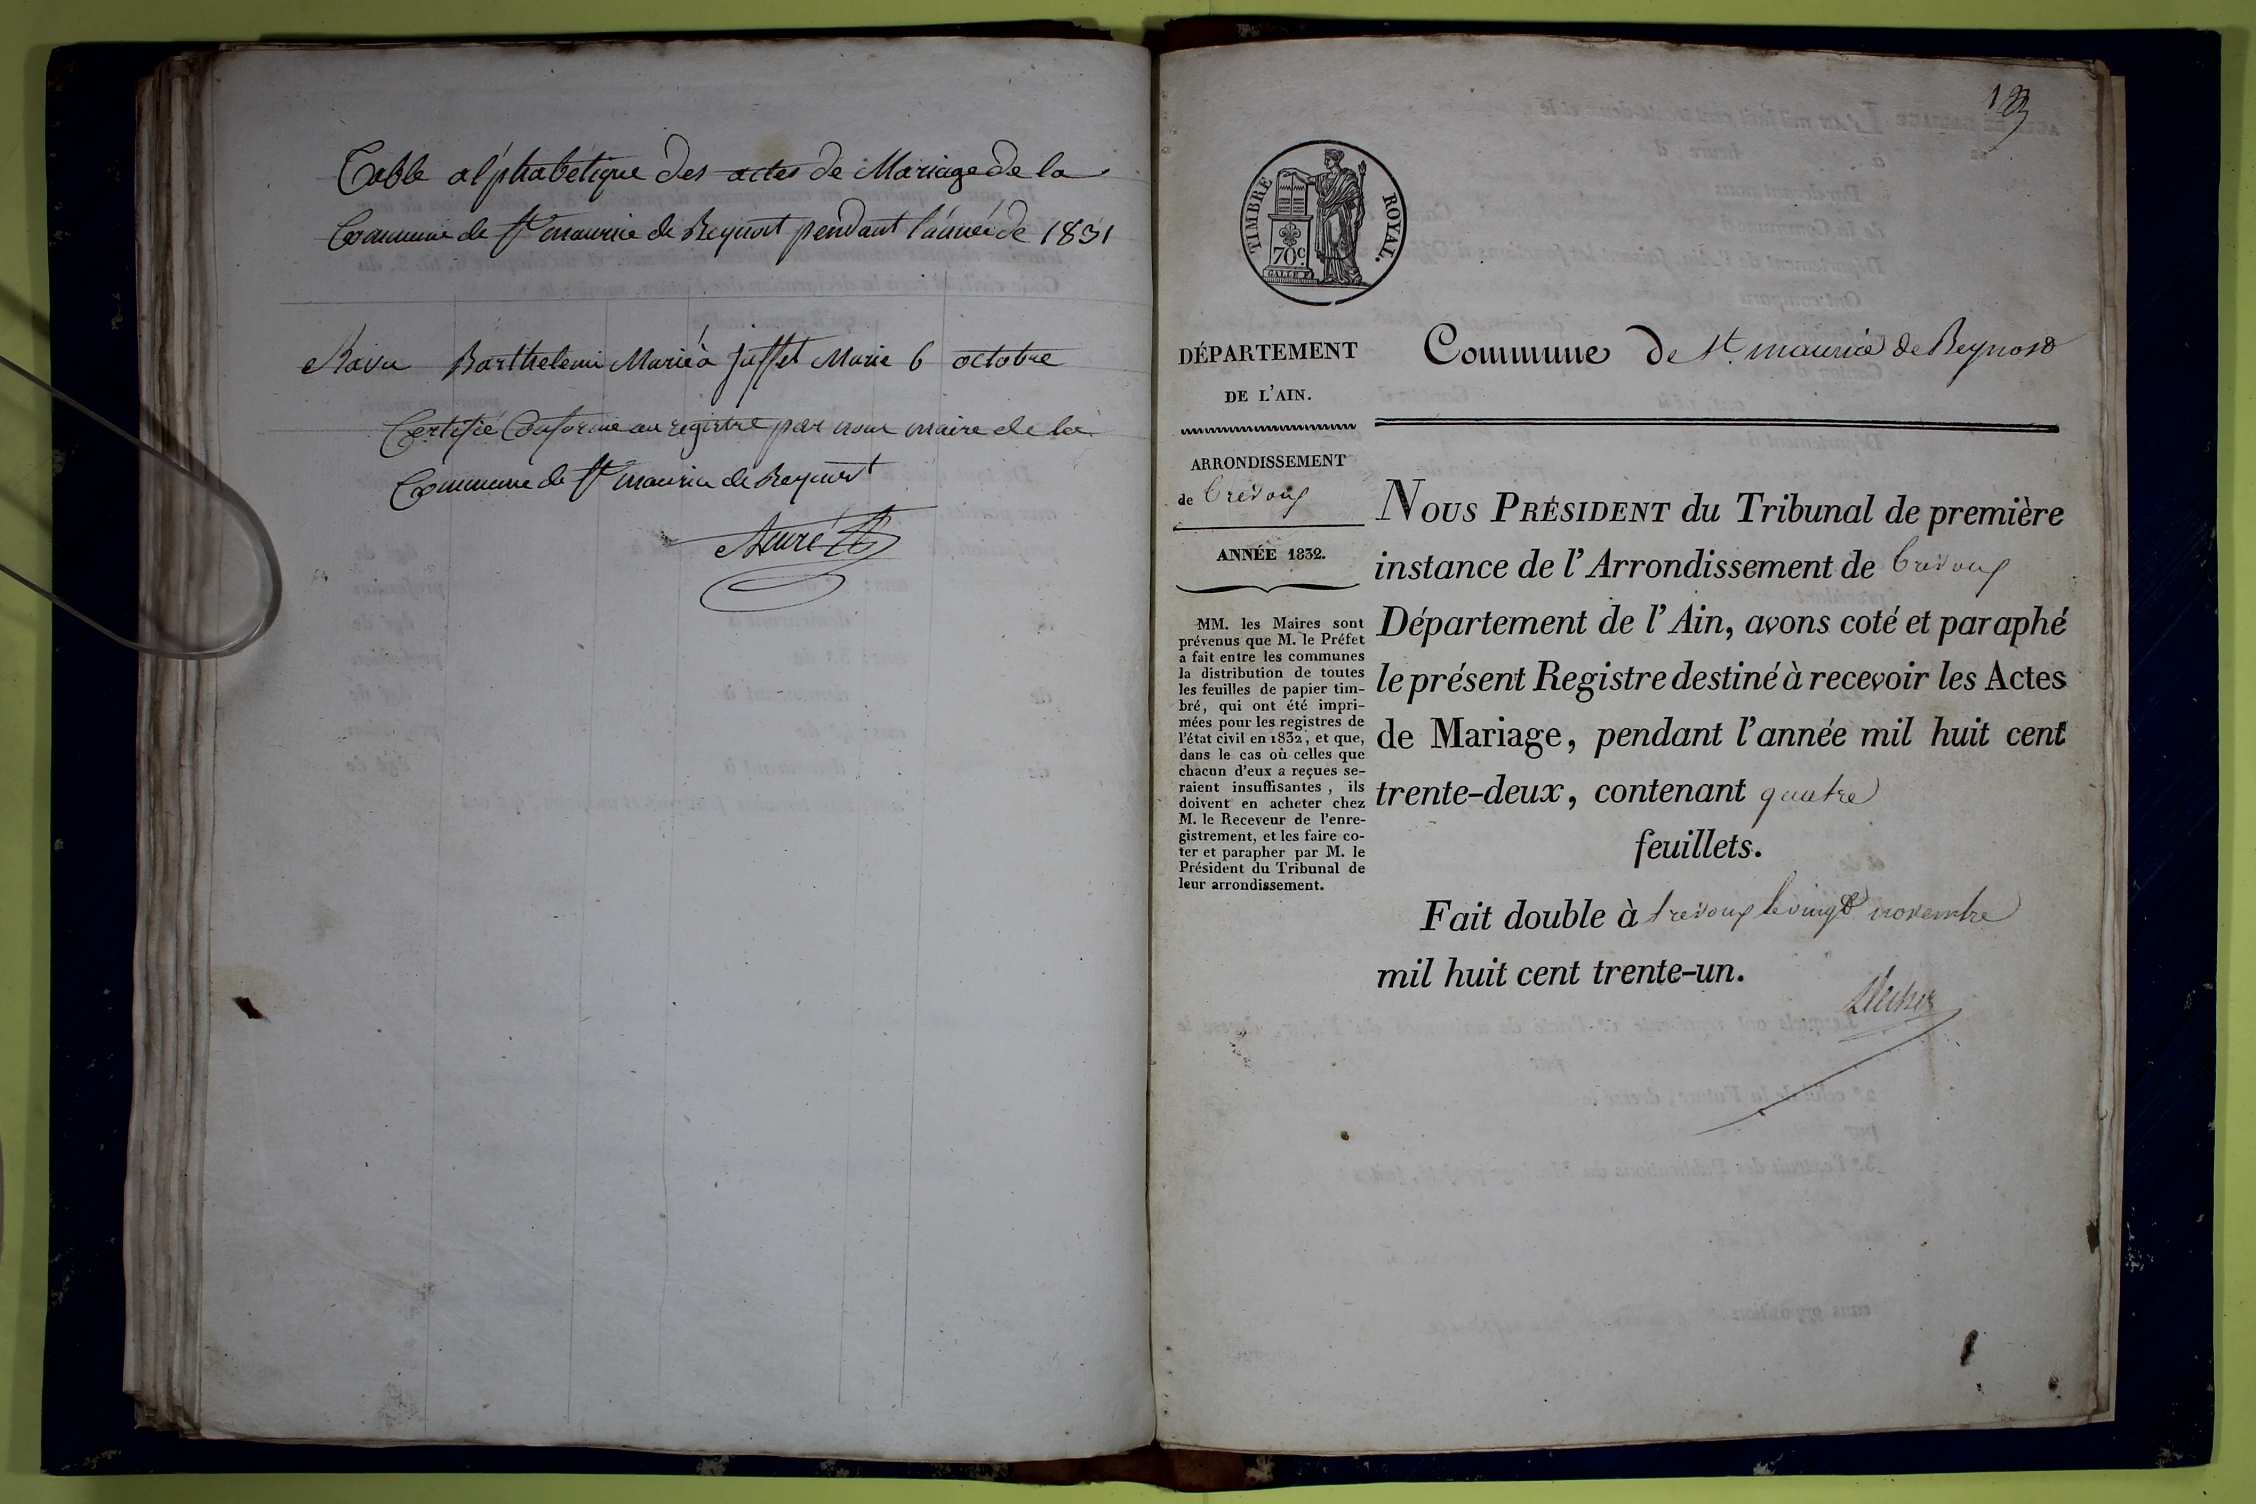 Table alphabétique des actes de Mariage de la
Commune de St maurice de Beynost pendant l'année de 1831
Ravu Barthelemi Marié à Juffet Marie 6 octobre
Certifié Conforme au registre par nous maire de la
Commune de St maurice de Beynost
TIMBRE ROYAL.
70 c.
DÉPARTEMENT
DE L'AIN.
ARRONDISSEMENT
de Trévoux
ANNÉE 1832.
MM. les Maires sont
prévenus que M. le Préfet
a fait entre les communes
la distribution de toutes
les feuilles de papier tim-
bré, qui ont été impri-
mées pour les registres de
l'état civil en 1832, et que,
dans le cas où celles que
chacun d'eux a reçues se-
raient insuffisantes, ils
doivent en acheter chez
M. le Receveur de l'enre-
gistrement, et les faire co-
ter et parapher par M. le
Président du Tribunal de
leur arrondissement.
Commune de St. maurice de Beynost
NOUS PRÉSIDENT du Tribunal de première
instance de l'Arrondissement de trevoux
Département de l'Ain, avons coté et paraphé
le présent Registre destiné à recevoir les Actes
de Mariage, pendant l'année mil huit cent
trente-deux, contenant quatre
feuillets.
Fait double à trevoux le vingt novembre
mil huit cent trente-un.